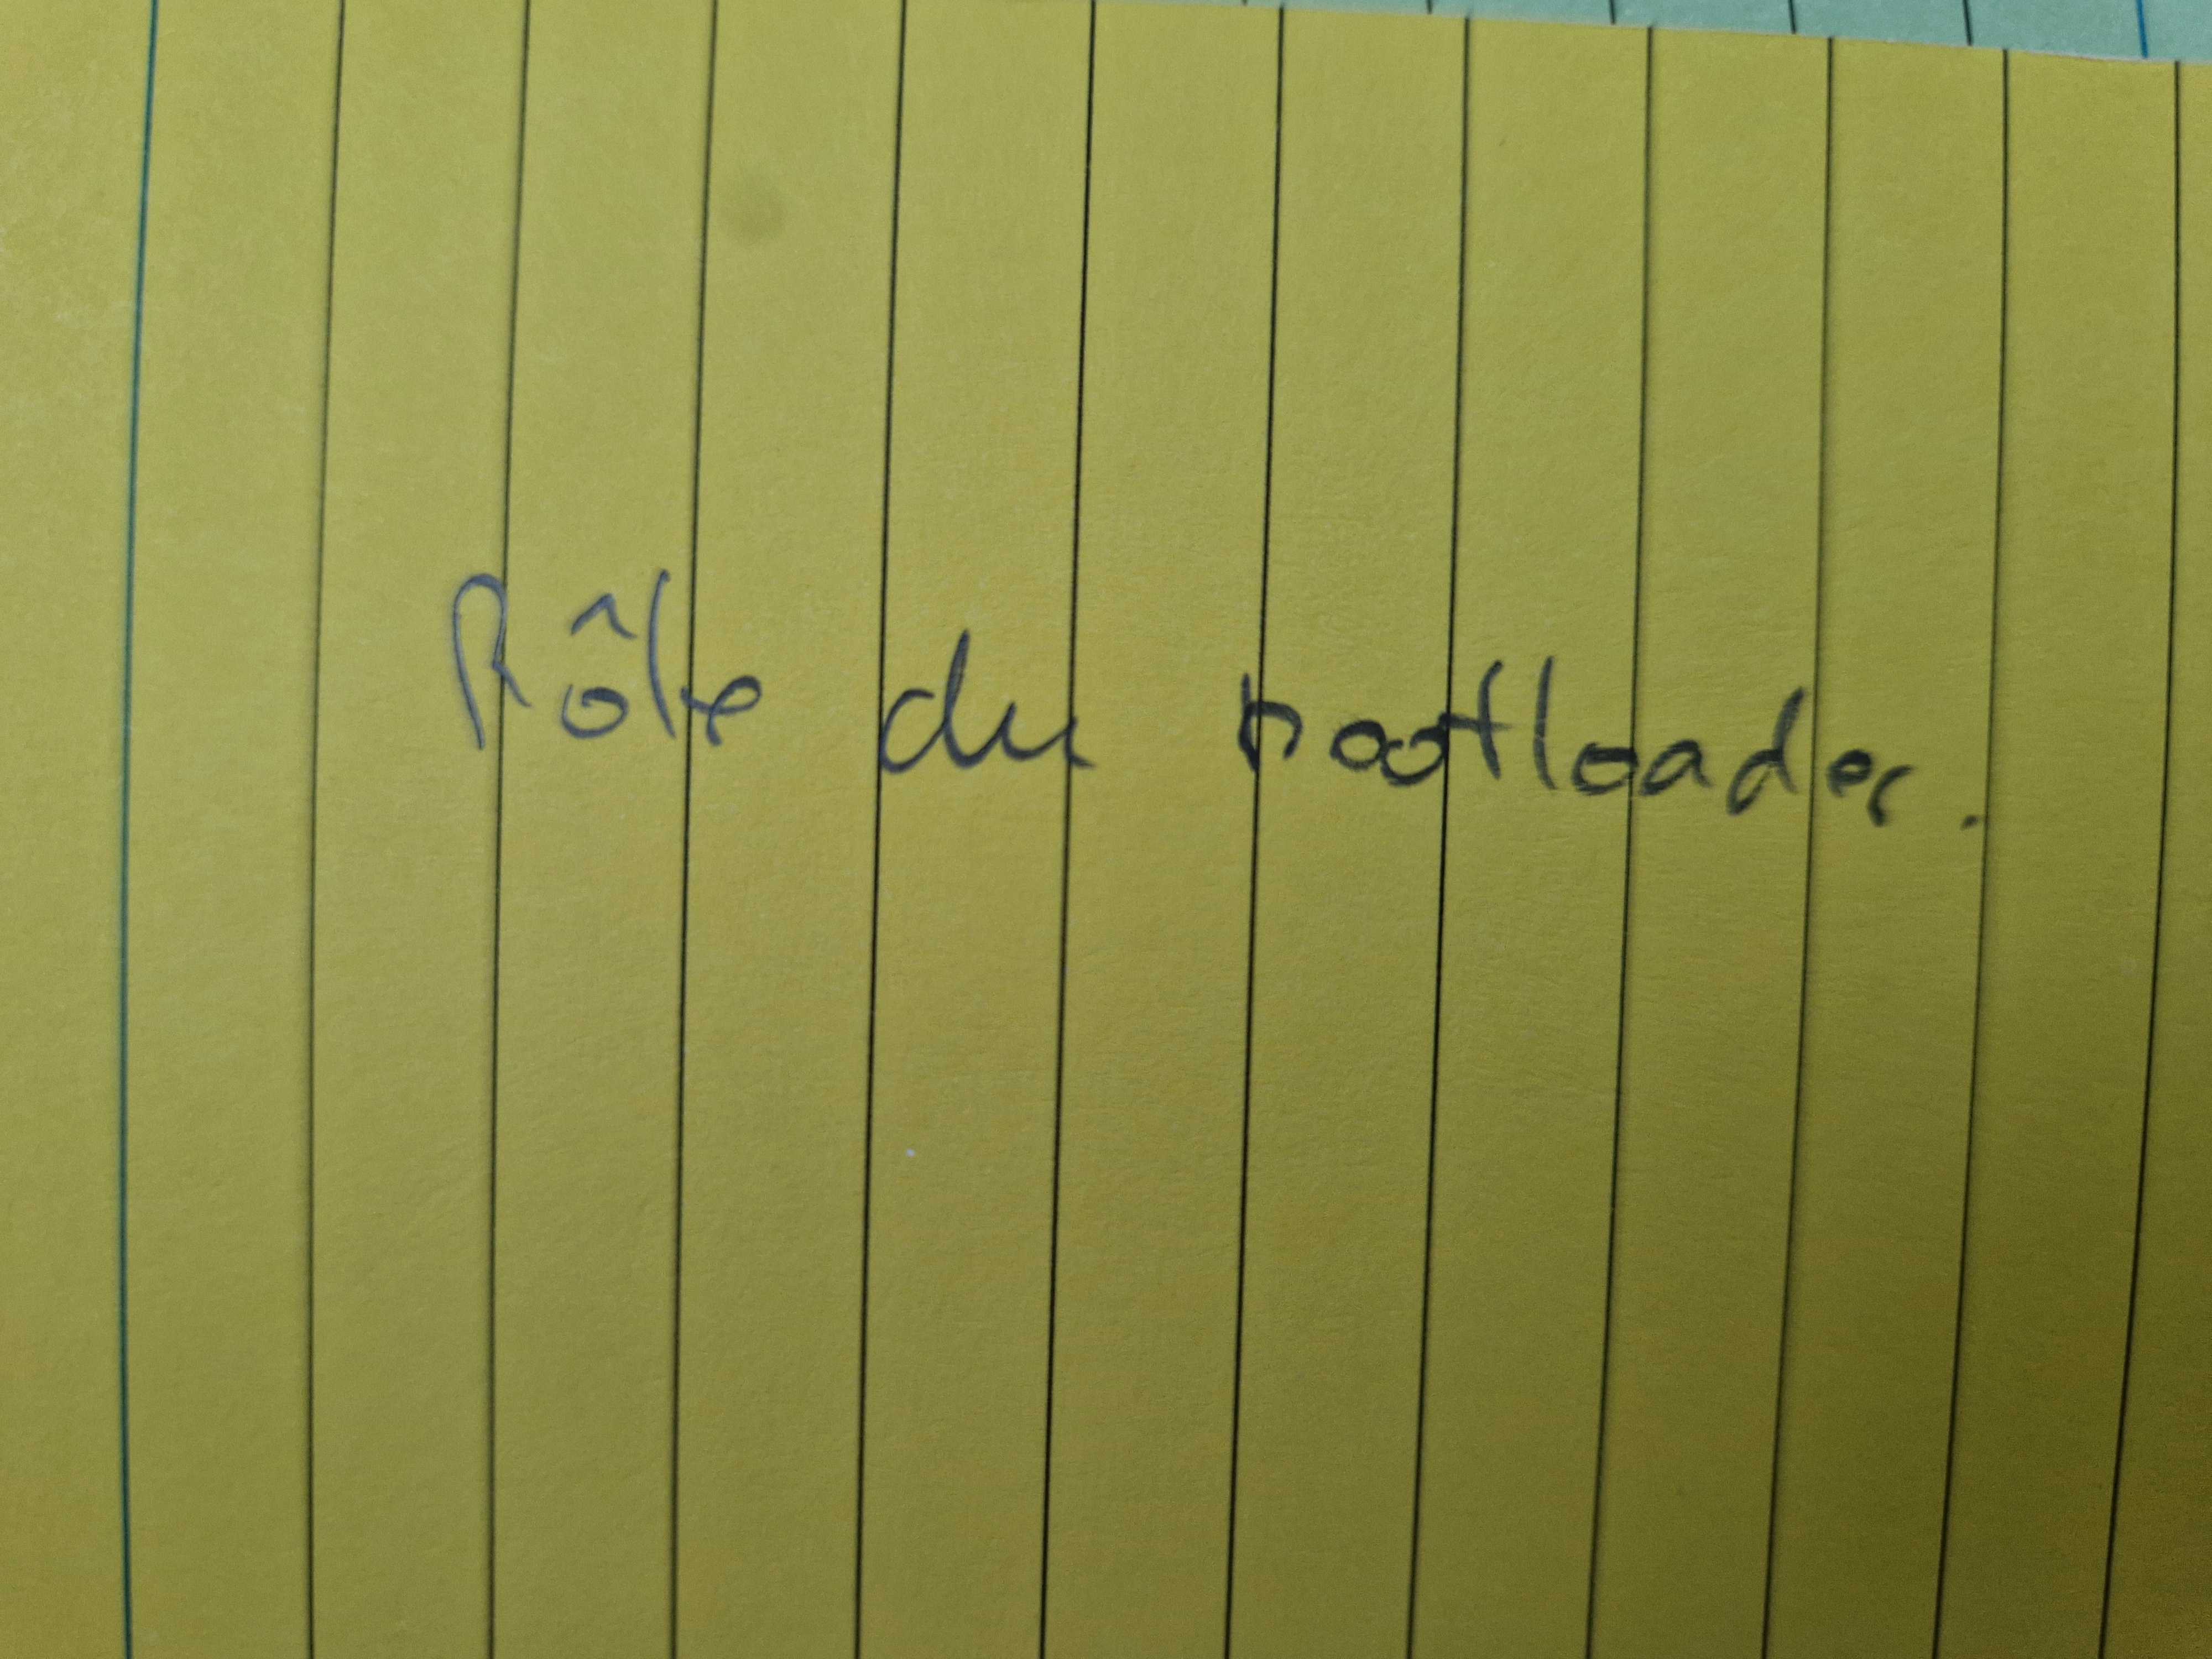 Rôle du bootloader.